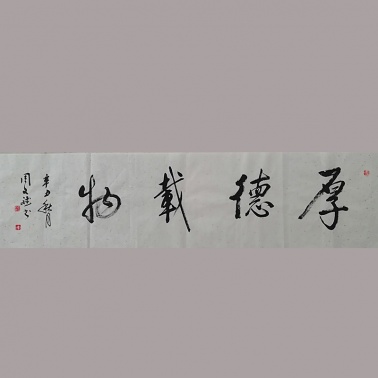 厚德載物
辛丑秋月
周文